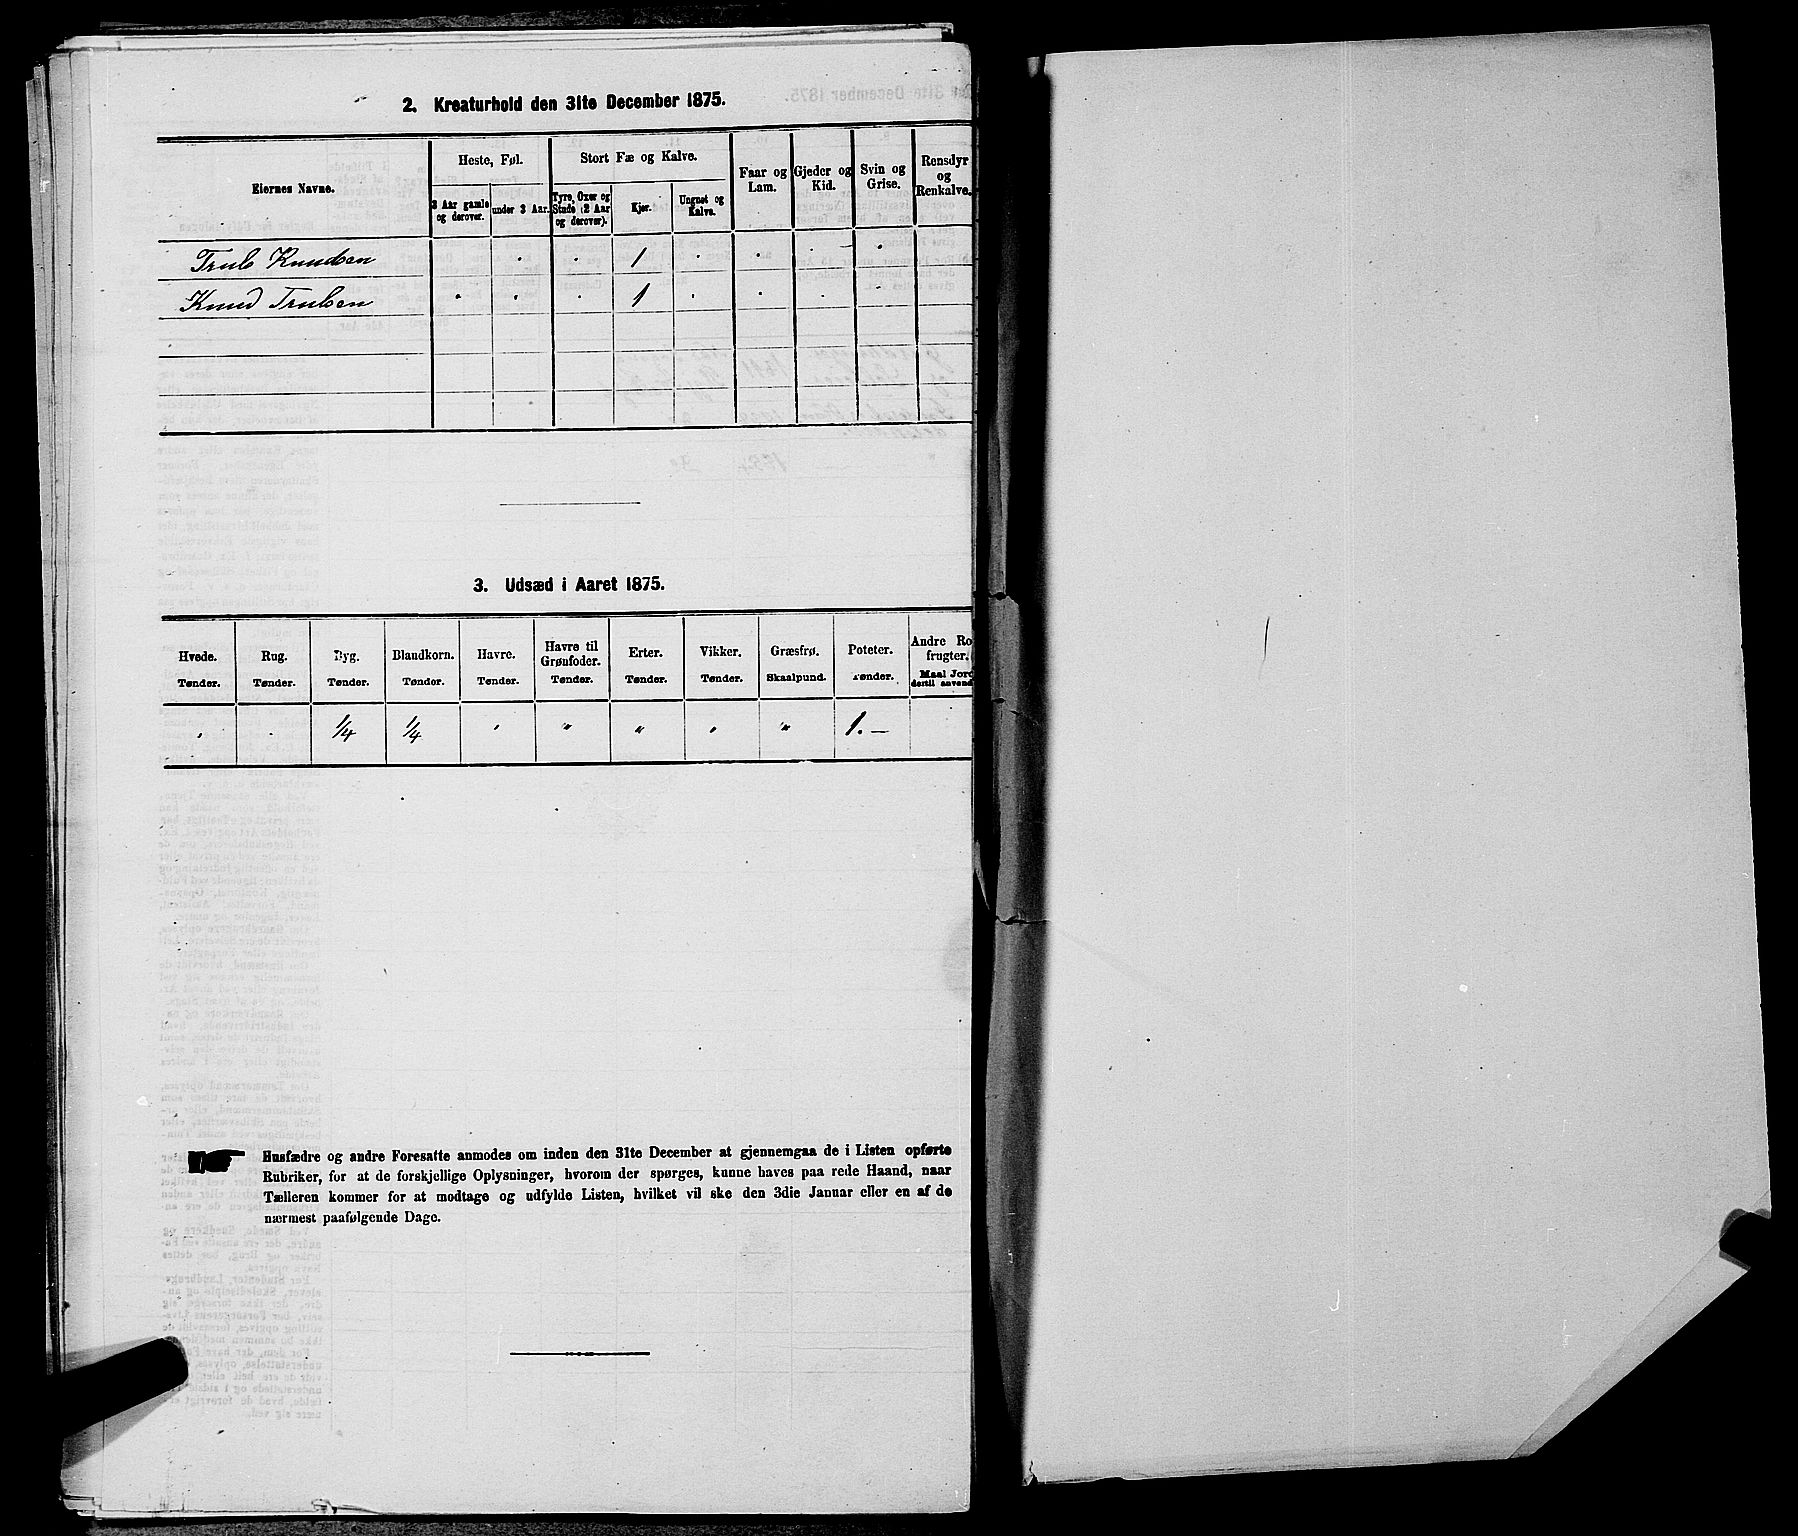 2. Kreaturhold den 31te December 1875.
Eiernes Navne.
Heste, Føl.
Stort Fæ og Kalve.
Faar og Lam.
Gjeder og Kid.
Svin og Grise.
Rensdyr og Renkalve.
3 Aar gamle og derover.
under 3 Aar.
Tyre, Oxer og Stude (2 Aar og derover).
Kjør.
Ungnøt og Kalve.
Truls Knudsen " " 1 " " " – "
Knud Trulsen " " " 1 " " " "
3. Udsæd i Aaret 1875.
Hvede. Rug. Byg. Blandkorn. Havre. Havre til Grønfoder. Erter. Vikker. Græsfrø. Poteter. Andre Ro frugter.
Tønder. Tønder. Tønder. Tønder. Tønder. Tønder. Tønder. Tønder. Skaalpund. Tønder. Maal Jord dertil anvend
" " 1/4 1/4 " " " " " 1. –
Husfædre og andre Foresatte anmodes om inden den 31te December at gjennemgaa de i Listen opførte
Rubriker, for at de forskjellige Oplysninger, hvorom der spørges, kunne haves paa rede Haand, naar
Tælleren kommer for at modtage og udfylde Listen, hvilket vil ske den 3die Januar eller en af de
nærmest paafølgende Dage.